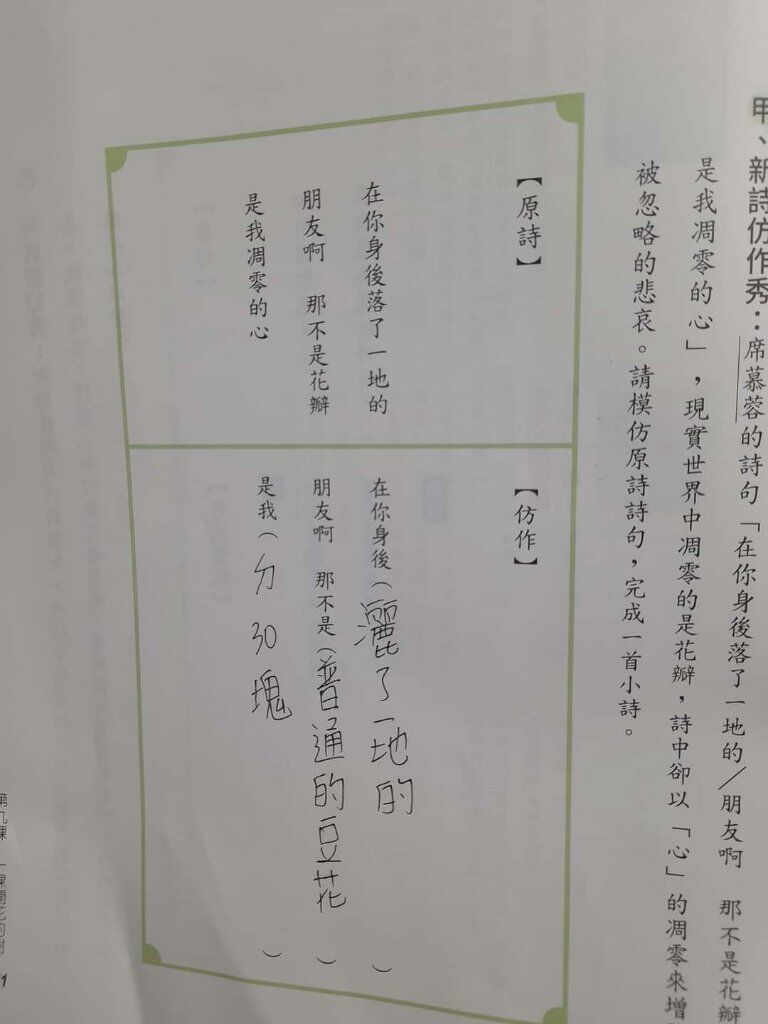 甲、新詩仿作秀：席慕蓉的詩句「在你身後落了一地的／朋友啊　那不是花瓣
是我凋零的心」，現實世界中凋零的是花瓣，詩中卻以「心」的凋零來增
被忽略的悲哀。請模仿原詩詩句，完成一首小詩。
【原詩】
在你身後落了一地的
朋友啊　那不是花瓣
是我凋零的心
【仿作】
在你身後（灑了一地的）
朋友啊　那不是（普通的豆花）
是我（ㄉ30塊）
第九課　一棵開花的樹